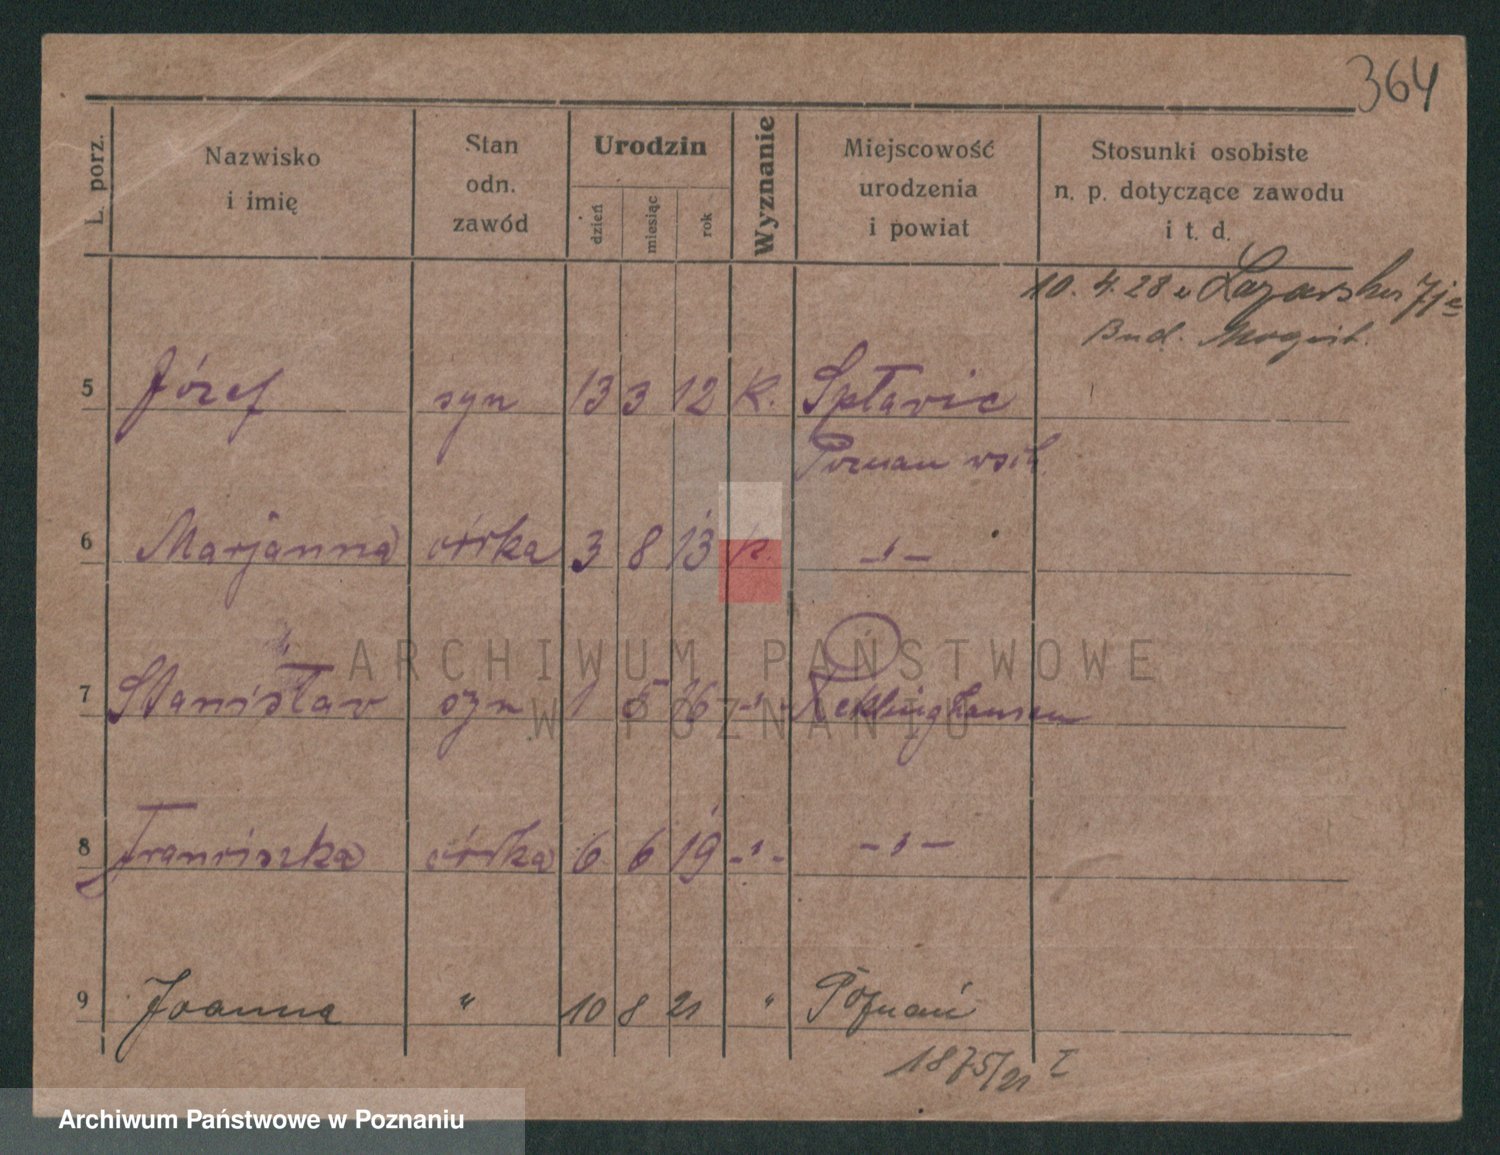 364
L. porz.
Nazwisko
i imię
Stan
odn.
zawód
Urodzin
dzień
miesiąc
rok
Wyznanie
Miejscowość
urodzenia
i powiat
Stosunki osobiste
n. p. dotyczące zawodu
i t. d.
10. 4. 28
5 Józef syn 13 3 12 K. Spławie
Poznan
6 Marjanna córka 3 8 13 K. -"-
7 Stanisław syn 1 5 16 -"- Reklinghausen
8 Franciszka córka 6 6 19 -"- -"-
9 Joanna " 10 8 21 " Poznań
1875/21 I
ARCHIWUM PAŃSTWOWE
W POZNANIU
Archiwum Państwowe w Poznaniu